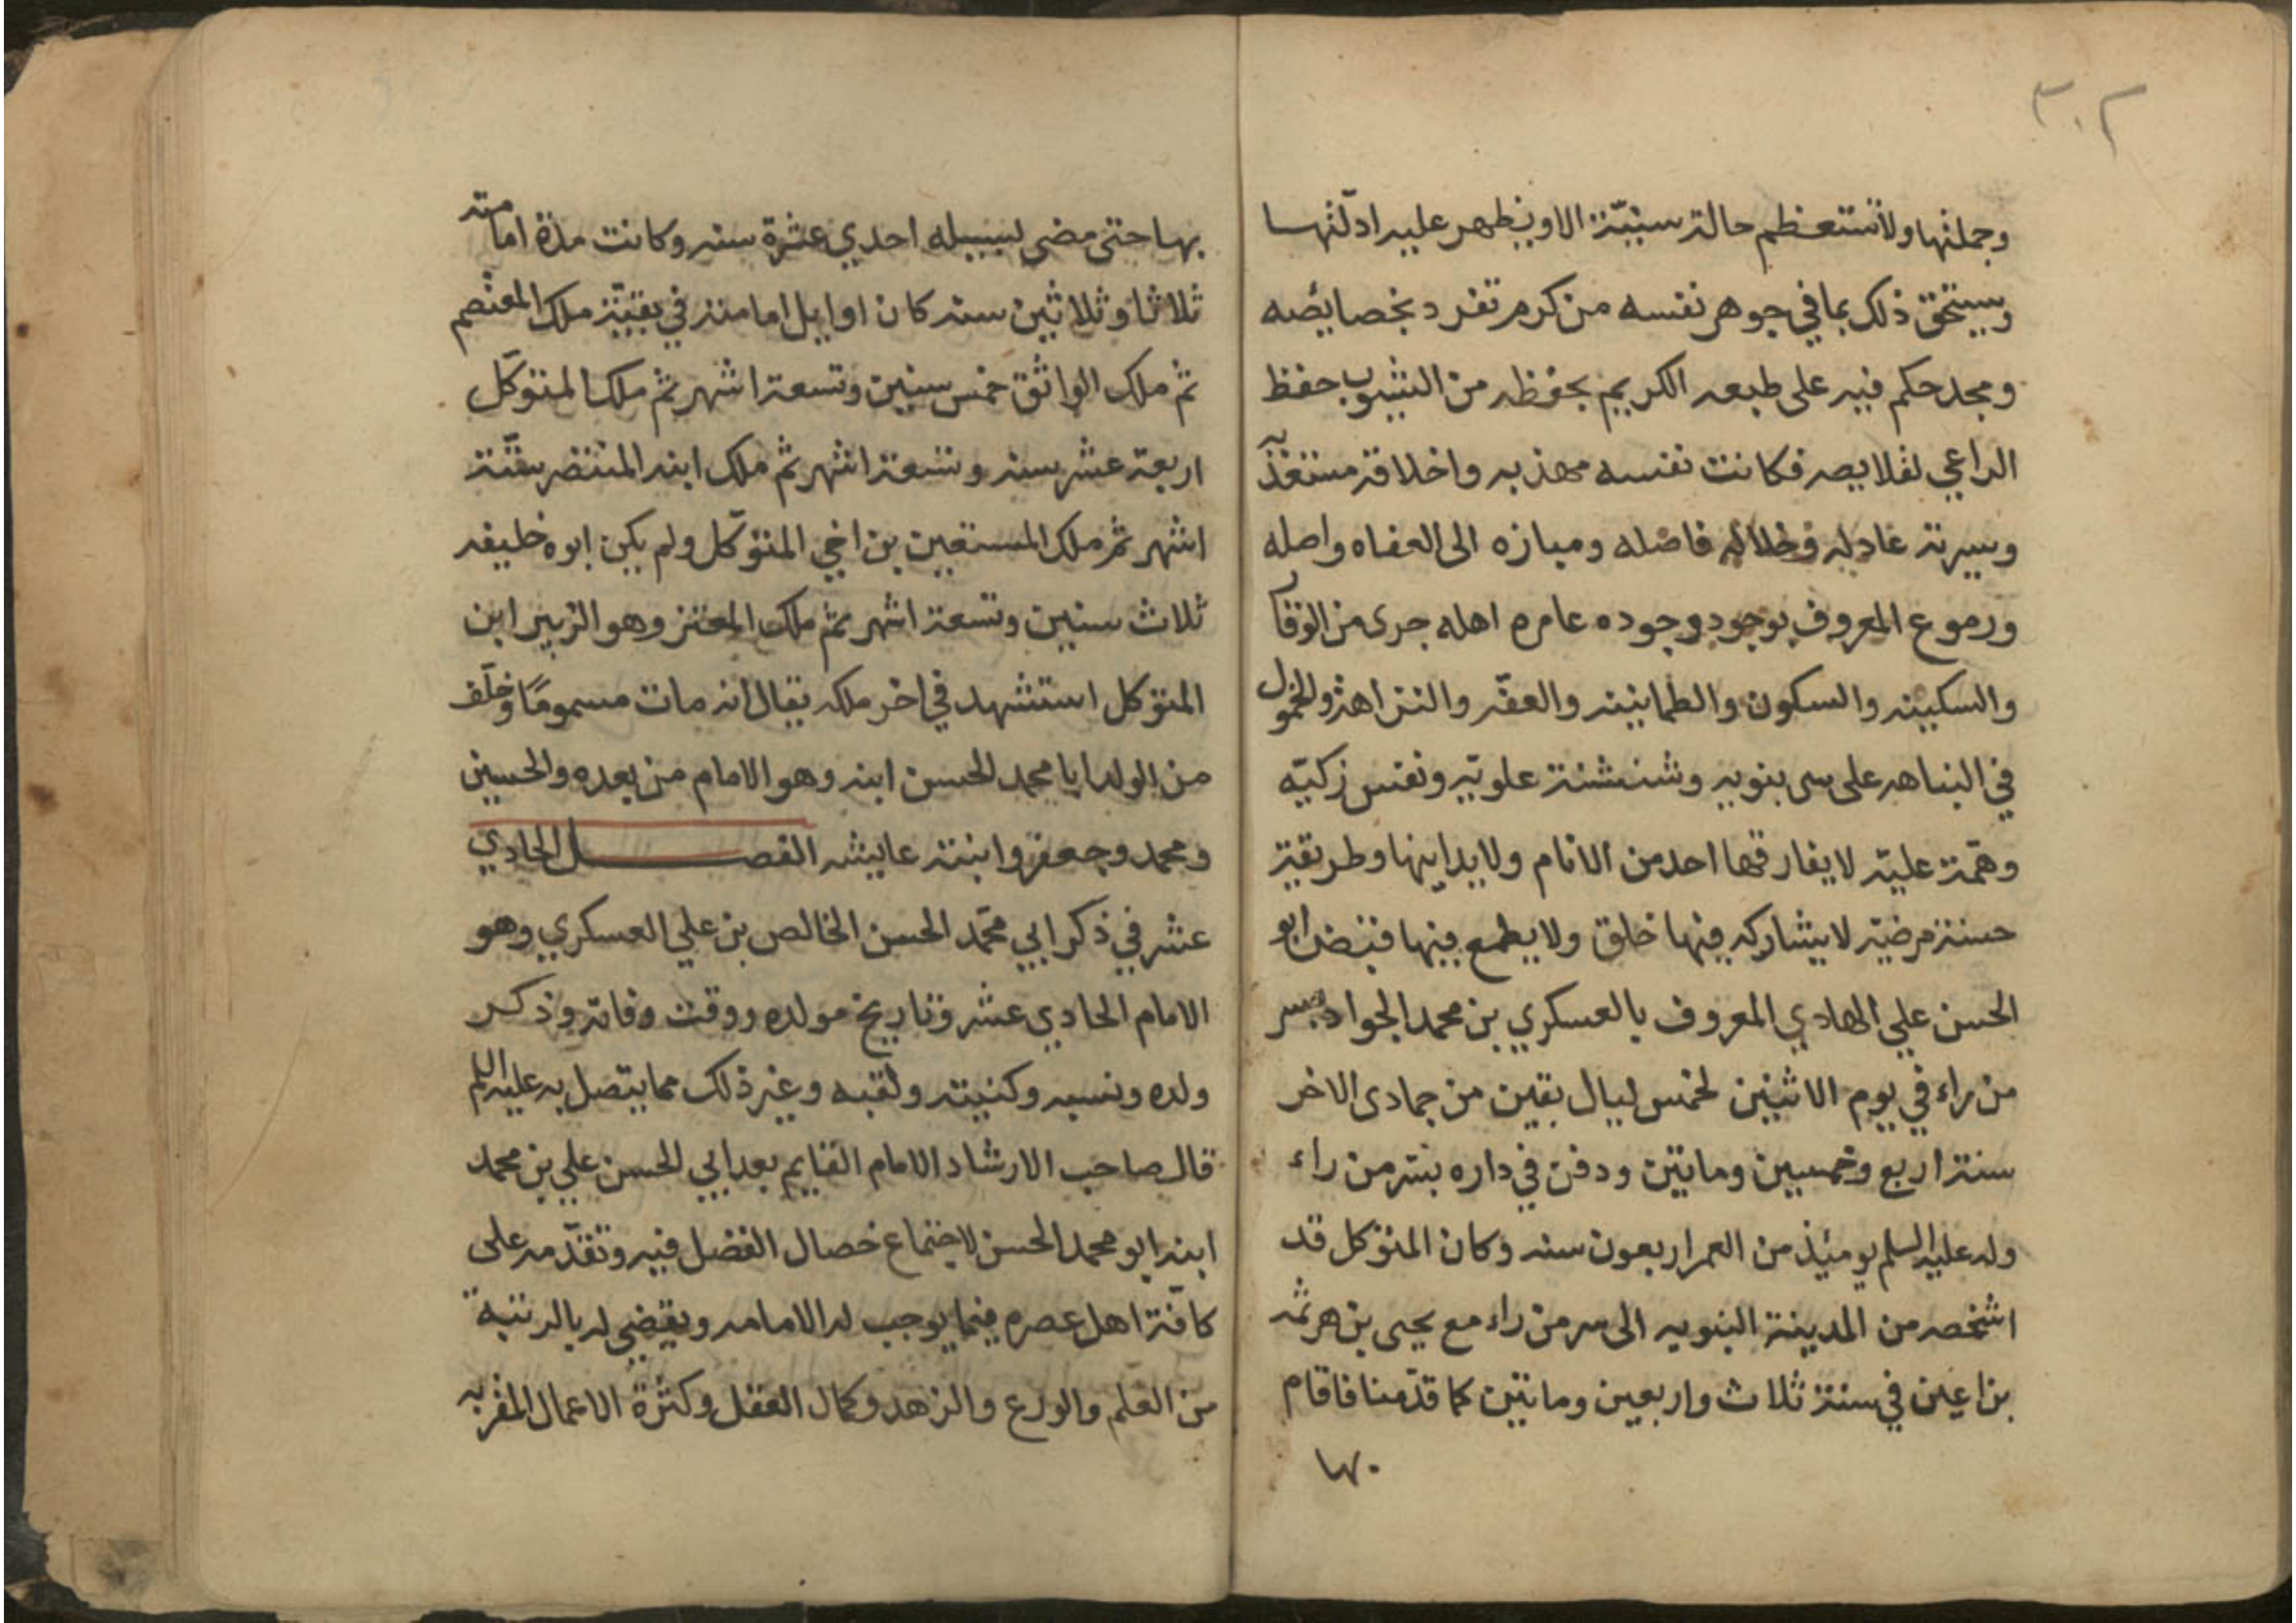 ٣٠٢
وجملتها ولا تستعظم حالة سنيّة الا ويظهر عليه ادلّتها
ويستحق ذلك بما في جوهر نفسه من كرم تفرد بخصايصه
ومجد حكم فيه على طبعه الكريم بحفظه من الشوب حفظ
الراعي لقلايصه فكانت نفسه مهذبه واخلاقه مستعذبة
وسيرته عادله وخلاله فاضله ومبازه الى العفاه واصله
ورموع المعروف بوجود وجوده عامره اهله جرى من الوقار
والسكينه والسكون والطمانينه والعفّه والنزاهة والخمول
في النباهه على سى بنويه وشنشنة علويّه ونفس زكيّه
وهمّة عليّه لا يفارقها احد من الانام ولا يدانيها وطريقة
حسنة مرضيّه لا يشاركه فيها خلق ولا يطمع فيها فتبض ابو
الحسن علي الهادي المعروف بالعسكري بن محمد الجواد بسر
من راء في يوم الاثنين لخمس ليال بقين من جمادى الاخر
سنة اربع وخمسين وماتين ودفن في داره بسر من راء
وله عليه السلم يومئذ من العمر اربعون سنه وكان المتوكل قد
اشخصه من المدينة النبويه الى سر من راء مع يحيى بن هرثمه
بن اعين في سنة ثلاث واربعين وماتين كما قدّمنا فاقام
بها
بها حتى مضى لسبيله احدي عشرة سنه وكانت مدة امامته
ثلاثا وثلاثين سنه كان اوايل امامته في بقيّة ملك المعتصم
ثم ملك الواثق خمس سنين وتسعة اشهر ثم ملك المتوكّل
اربعة عشر سنه وتسعة اشهر ثم ملك ابنه المنتصر ستّة
اشهر ثم ملك المستعين بن اخي المتوكّل ولم يكن ابوه خليفه
ثلاث سنين وتسعة اشهر ثم ملك المعتز وهو الزبير ابن
المتوكل استشهد في اخر ملكه يقال انه مات مسمومًا وخلّف
من الولد ابا محمد الحسن ابنه وهو الامام من بعده والحسين
ومحمد وجعفر وابنته عايشه الفصل الحادي
عشر في ذكر ابي محمّد الحسن الخالص بن علي العسكري وهو
الامام الحادي عشر وتاريخ مولده ووقت وفاته وذكر
ولده ونسبه وكنيته ولقبه وغير ذلك مما يتصل به عليه السلم
قال صاحب الارشاد الامام القايم بعد ابي الحسن علي بن محمد
ابنه ابو محمد الحسن لاجتماع خصال الفضل فيه وتقدّمه على
كافّة اهل عصره فيما يوجب له الامامه ويقضي له بالرتبة
من العلم والورع والزهد وكمال العقل وكثرة الاعمال المقربه